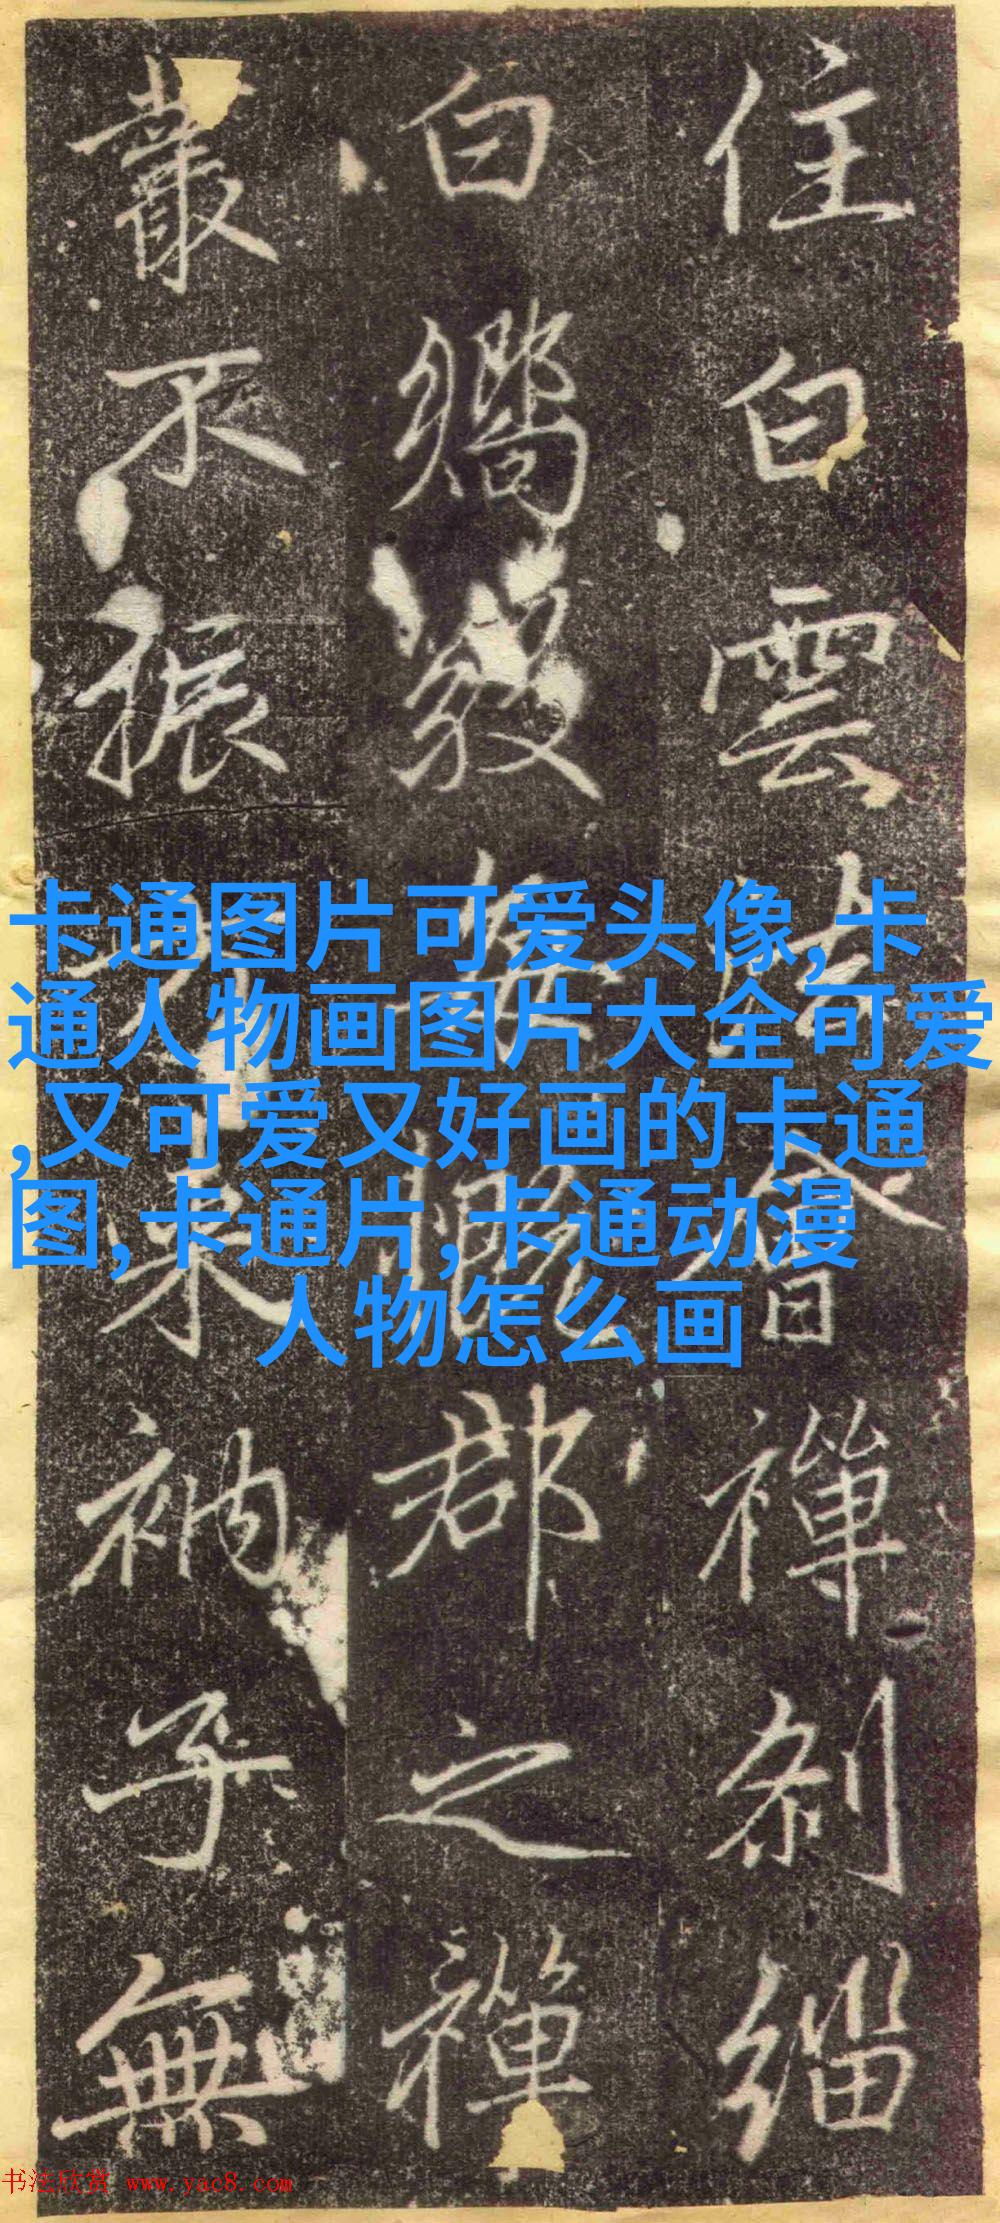 住白雲會禪剎緇
白郡之禪
叢不振來衲子無
卡通图片可爱头像,卡
通人物画图片大全可爱
,又可爱又好画的卡通
图,卡通片,卡通动漫
人物怎么画
书法欣赏 www.yac8.com